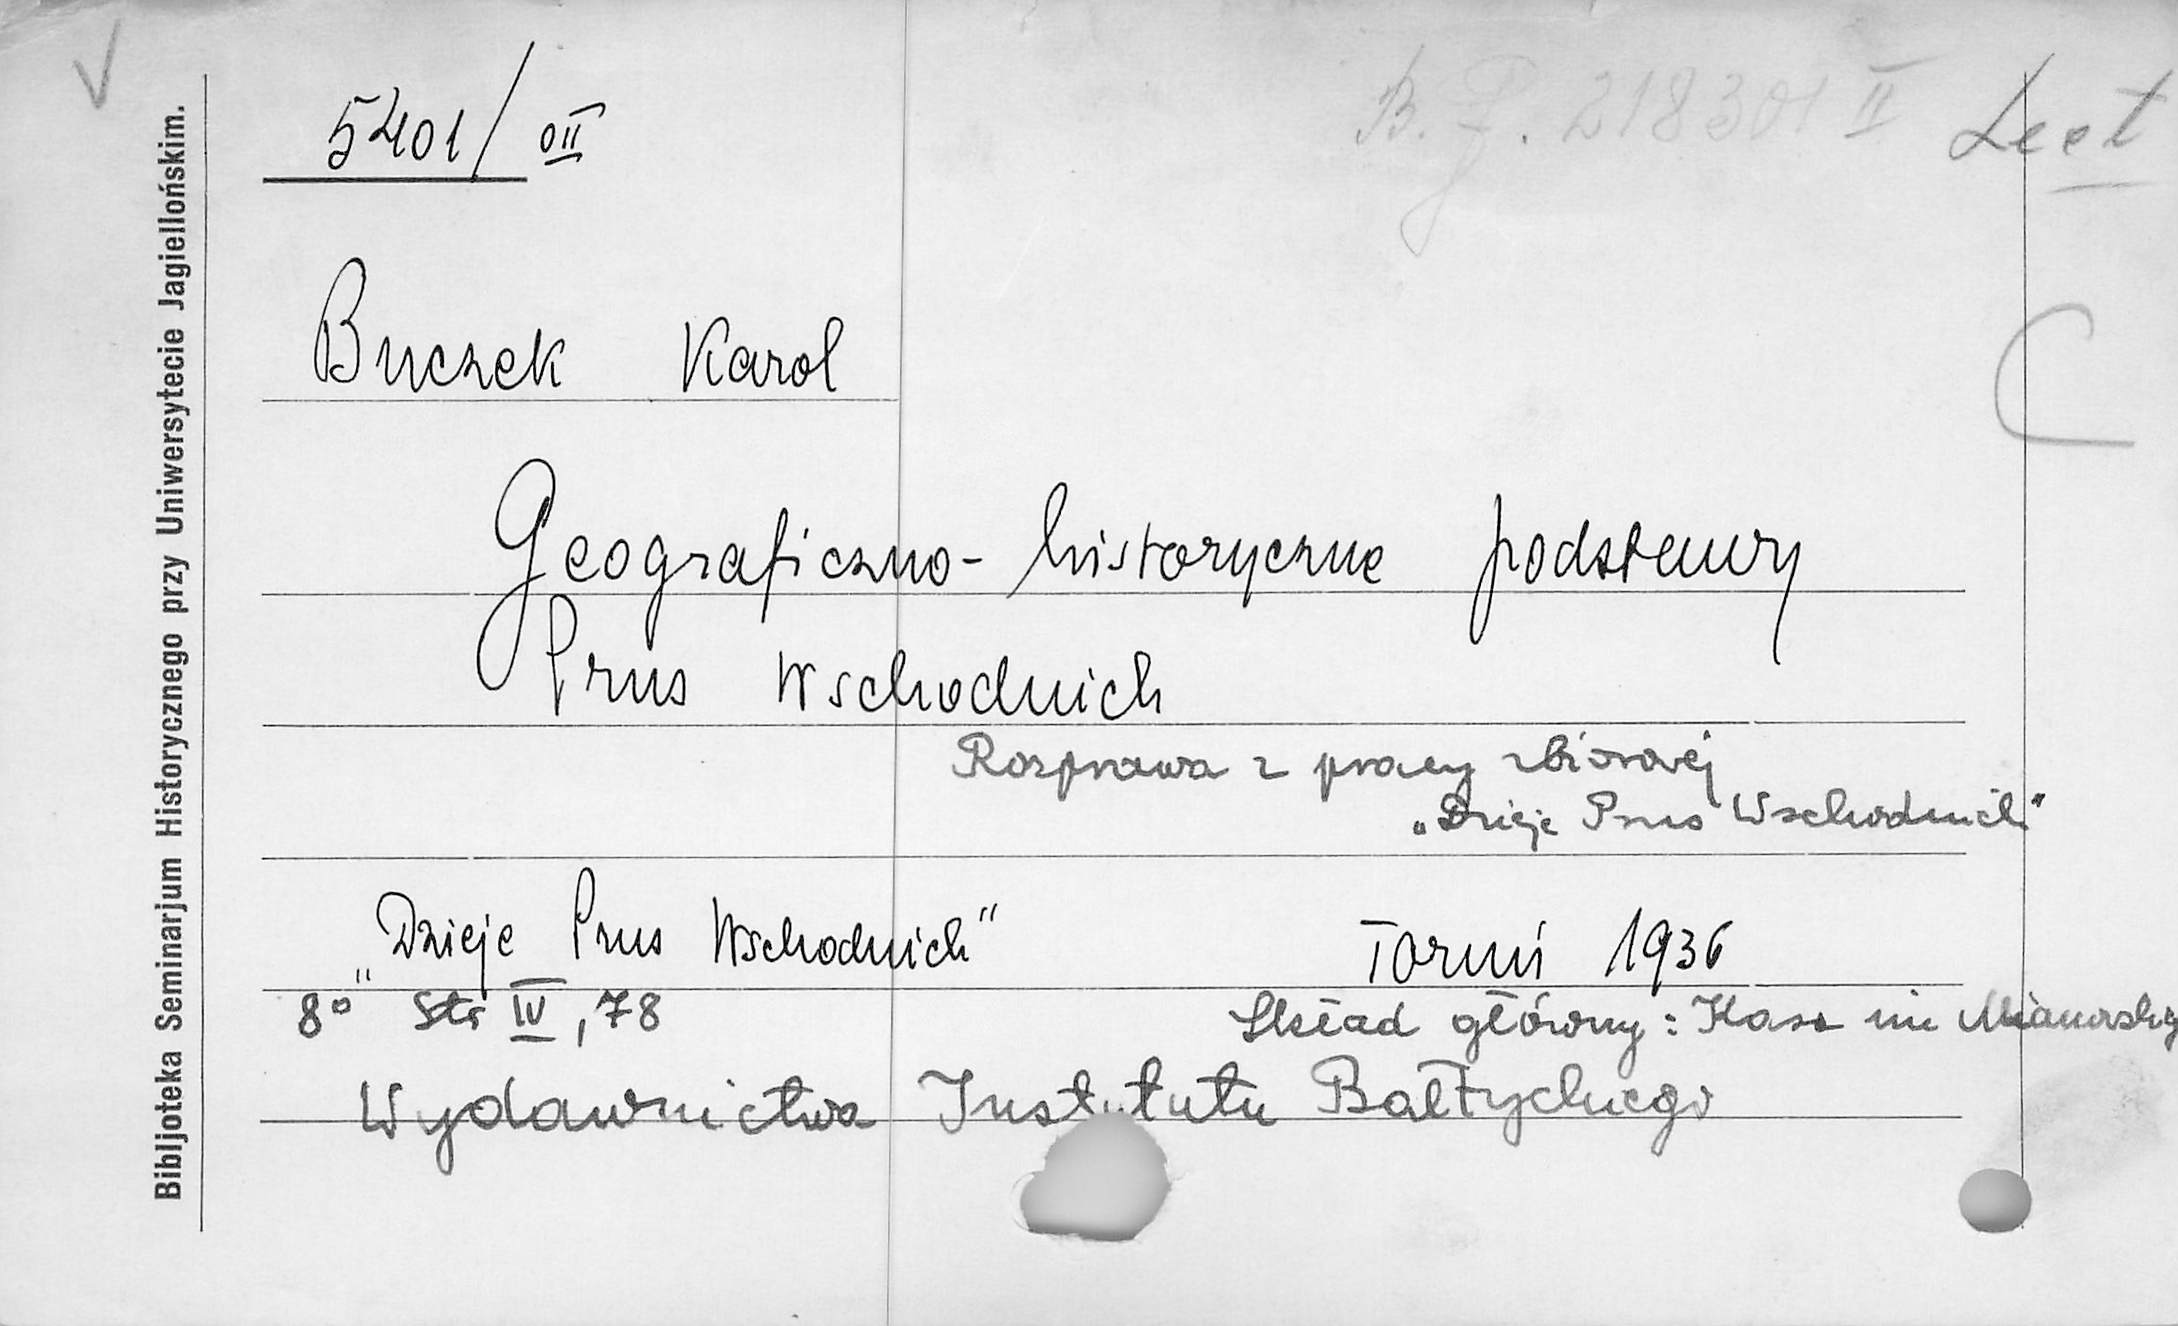 5401/oII
B. J. 218301 II
Lect
Buczek Karol
C
Geograficzno-historyczne podstawy
Prus Wschodnich
Rozprawa z pracy zbiorowej
„Dzieje Prus Wschodnich"
„Dzieje Prus Wschodnich" Toruń 1936
8° Str IV, 78 Skład główny: Kasa im Mianowskieg
Wydawnictwa Instytutu Bałtyckiego
Bibljoteka Seminarjum Historycznego przy Uniwersytecie Jagiellońskim.